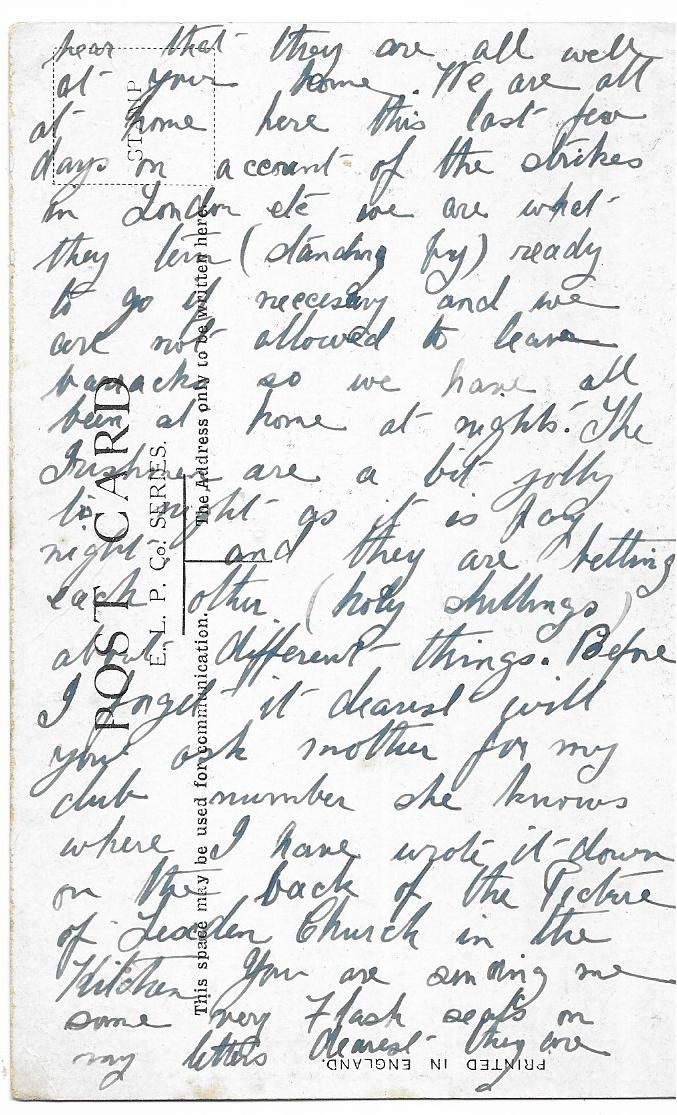 hear that they are all well
at your home. We are all
at home here this last few
days on account of the strikes
in London etc we are what
they term (standing by) ready
to go if neccesary and we
are not allowed to leave
barracks so we have all
been at home at nights. The
Irishmen are a bit jolly
to night as it is pay
night and they are betting
each other (holy shillings)
about different things. Before
I forget it dearest will
you ask mother for my
club number she knows
where I have wrote it down
on the back of the Picture
of Lexden Church in the
Kitchen You are sending me
some very Flash seals on
my letters dearest they are
STAMP
POST CARD
E. L. P. Co. SERIES.
The Address only to be written here.
This space may be used for communication.
PRINTED IN ENGLAND.